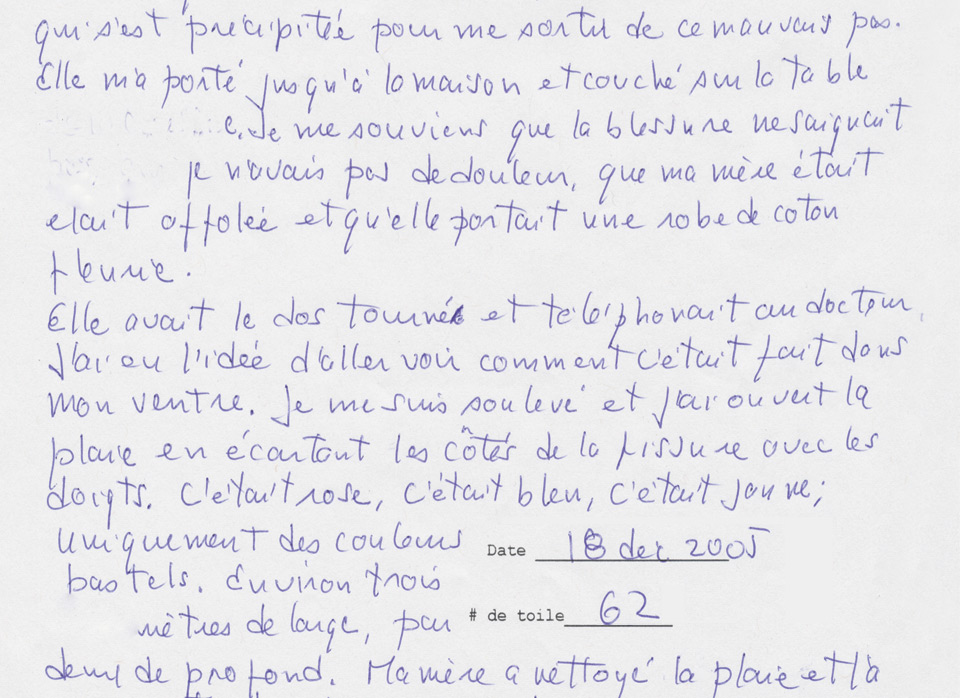 qui s'est précipitée pour me sortir de ce mauvais pas.
Elle m'a porté jusqu'à la maison et couché sur la table
e. Je me souviens que la blessure ne saignait
je n'avais pas de douleur, que ma mère était
etait affolée et qu'elle portait une robe de coton
fleurie.
Elle avait le dos tourné et téléphonait au docteur.
J'ai eu l'idée d'aller voir comment c'était fait dans
mon ventre. Je me suis soulevé et j'ai ouvert la
plaie en écartant les côtés de la fissure avec les
doigts. C'était rose, c'était bleu, c'était jaune;
uniquement des couleurs
pastels. Environ trois
Date 18 dec 2005
mètres de large, par
# de toile 62
demi de profond. Ma mère a nettoyé la plaie et l'a